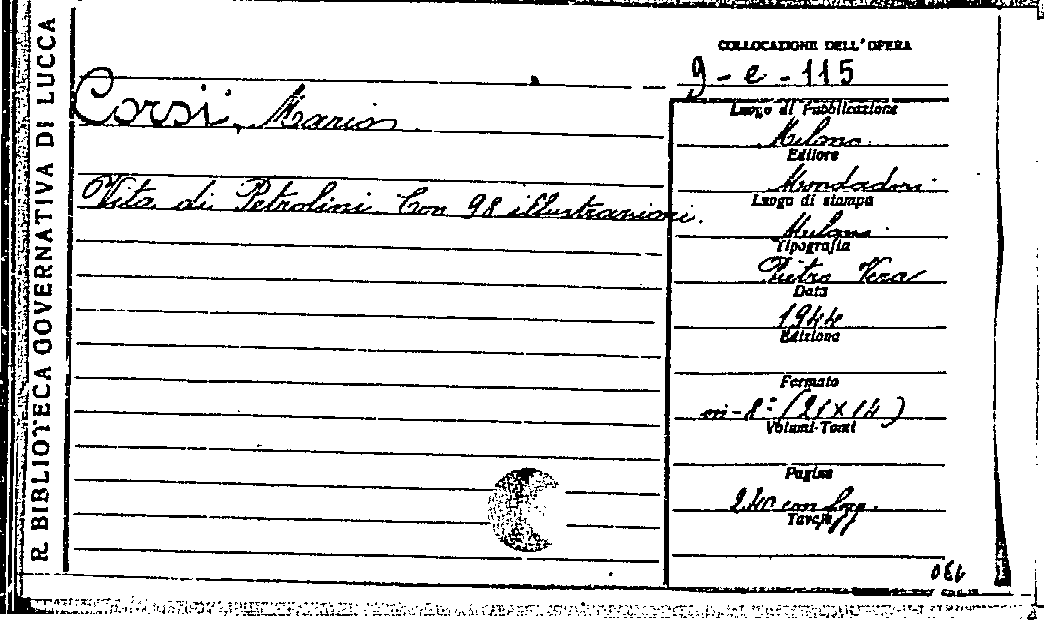 R. BIBLIOTECA GOVERNATIVA DI LUCCA
COLLOCAZIONE DELL'OPERA
9-e-115
Corsi, Mario
Vita di Petrolini. Con 98 illustrazioni.
Luogo di Pubblicazione
Milano
Editore
Mondadori
Luogo di stampa
Milano
Tipografia
Pietro Vera
Data
1944
Edizione
Formato
in-8° (21x14)
Volumi-Tomi
Pagine
240 con
Tavole